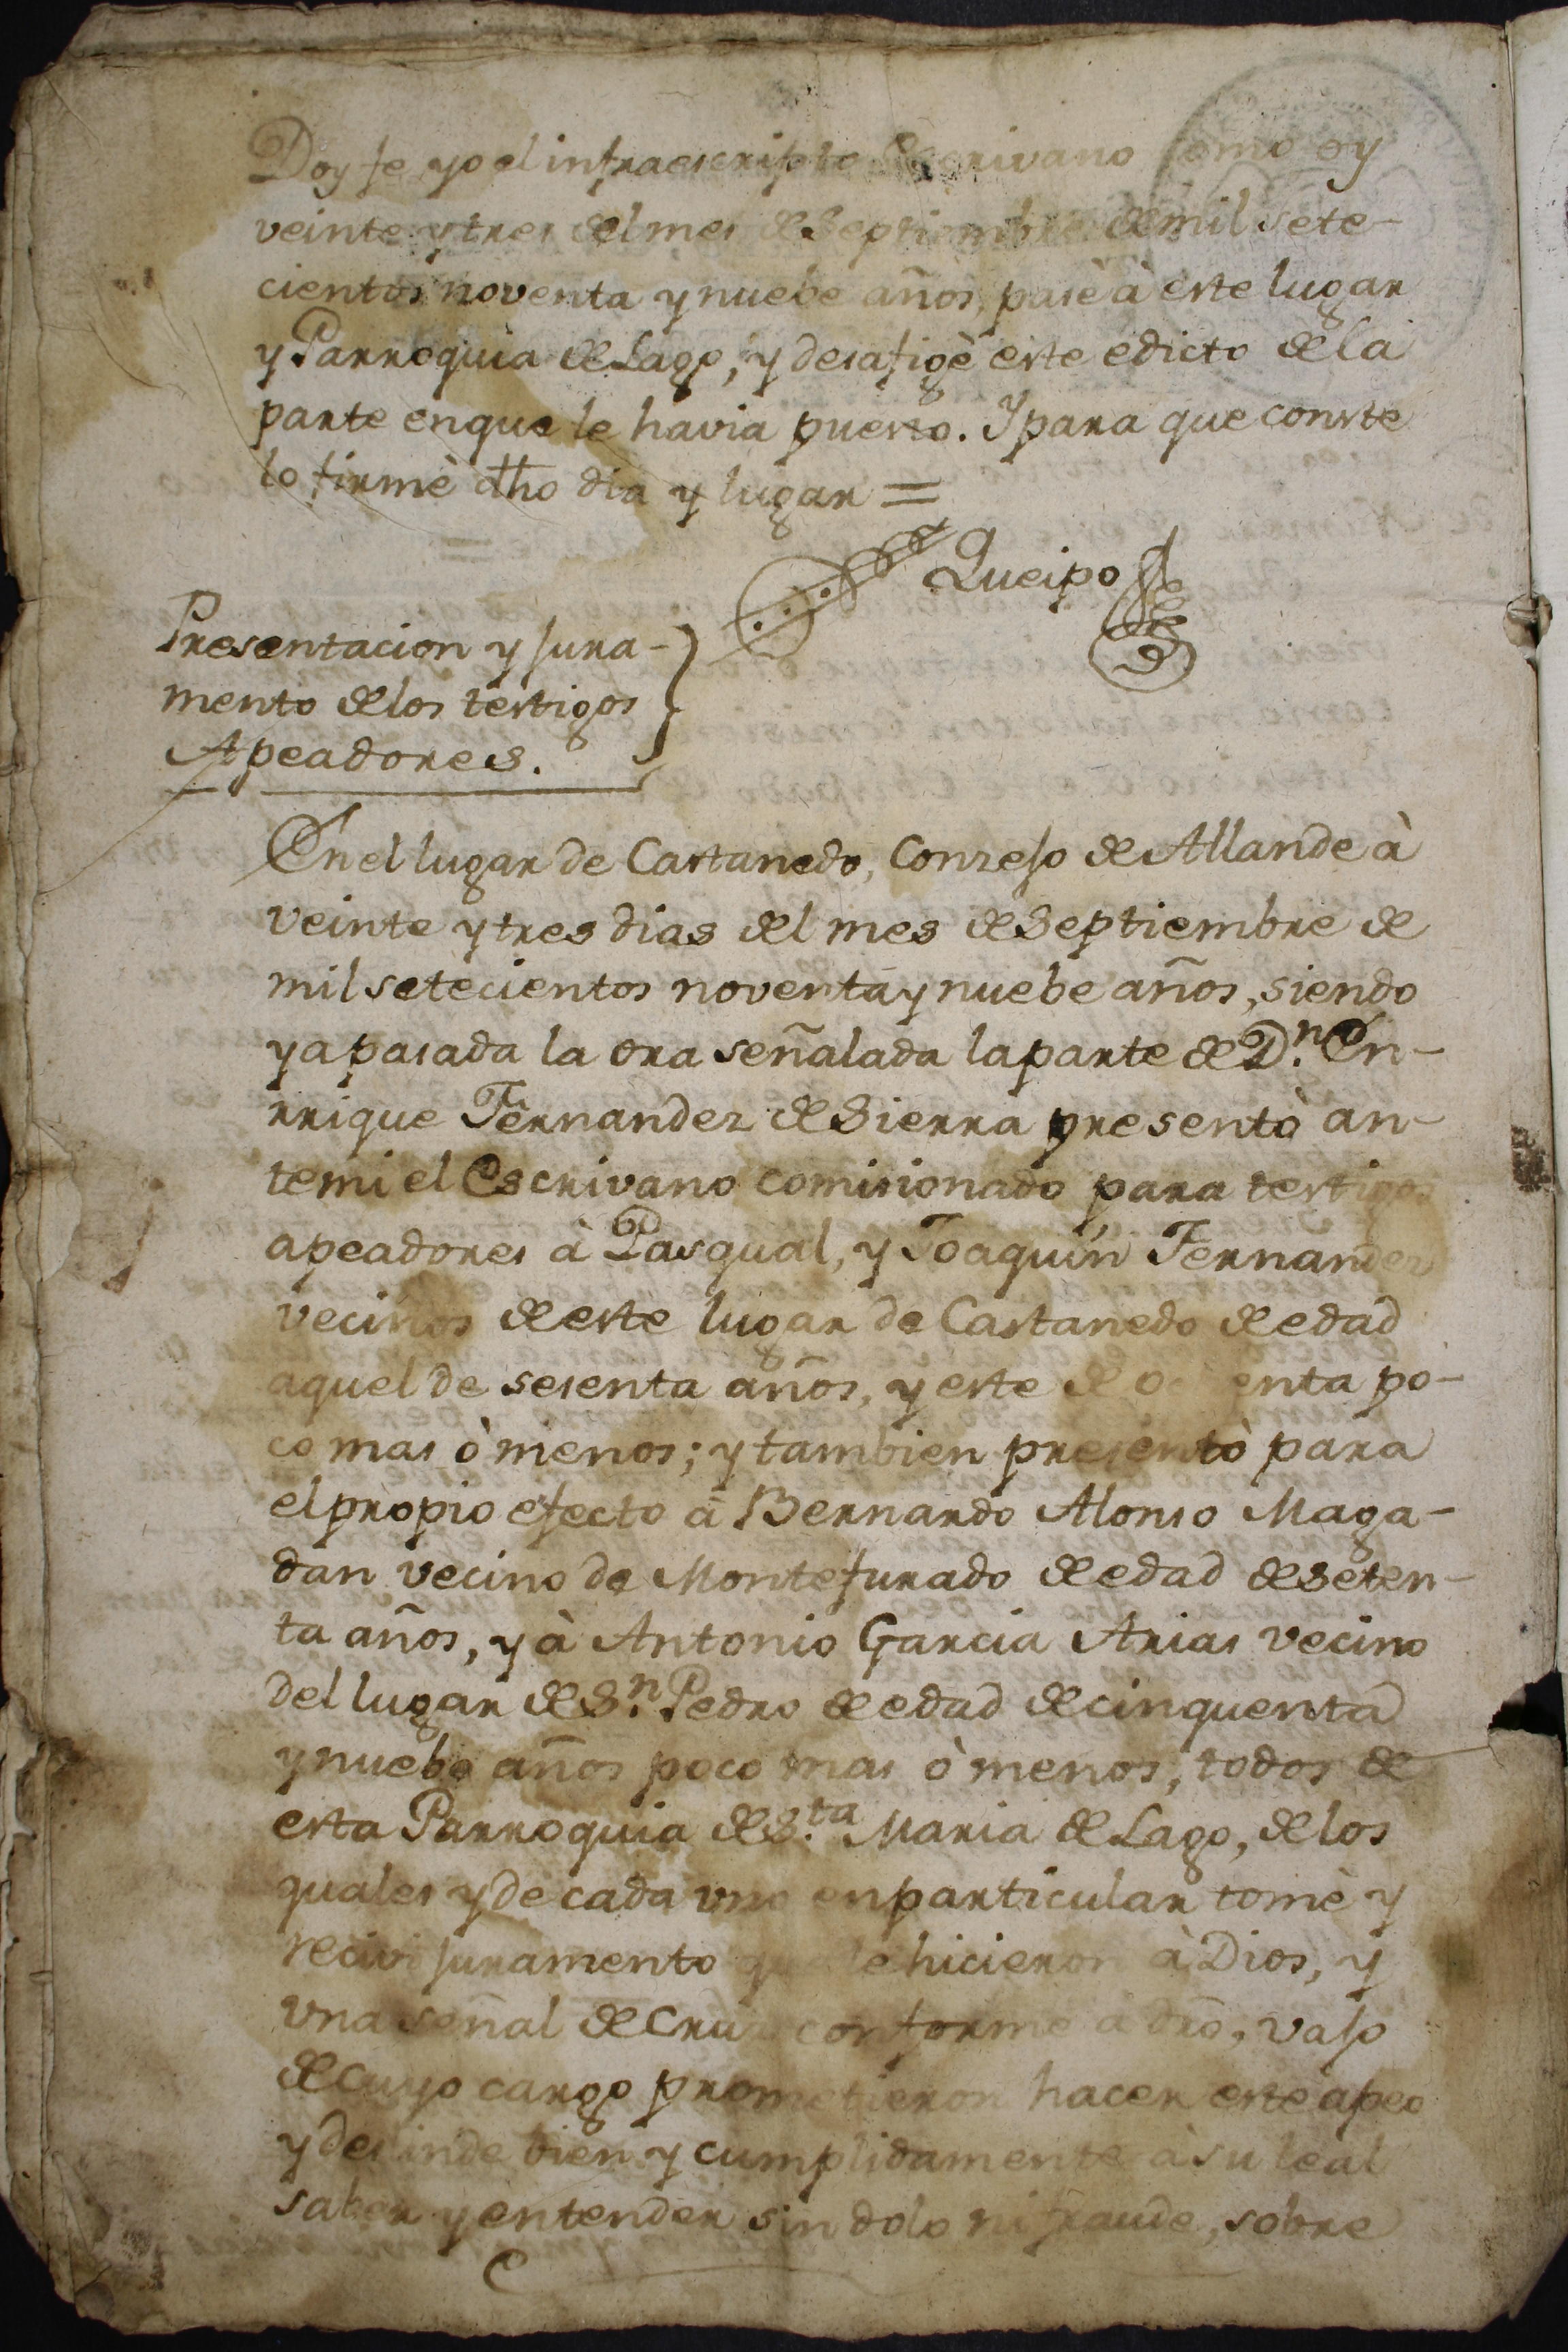 Doy fe yo el infraescripto Escrivano como oy
veinte y tres del mes de Septiembre de mil sete-
cientos noventa y nuebe años, pasè à este lugar
y Parroquia de Lago, y desafigè este edicto de la
parte en que le havia puesto. Y para que conste
lo firmè dho dia y lugar =
Queipo
Presentacion y jura-
mento de los testigos
Apeadores.
En el lugar de Castanedo, Conzejo de Allande à
veinte y tres dias del mes de Septiembre de
mil setecientos noventa y nuebe años, siendo
ya pasada la ora señalada la parte de D.n En-
rrique Fernandez de Sierra presentò an-
temi el Escrivano comisionado para testigos
apeadores à Pasqual, y Joaquin Fernandez
vecinos de este lugar de Castanedo de edad
aquel de sesenta años, y este de po-
co mas ò menos; y tambien presentò para
el propio efecto à Bernardo Alonso Maga-
dan vecino de Montefurado de edad de seten-
ta años, y à Antonio Garcia Arias vecino
del lugar de S.n Pedro de edad de cinquenta
y nuebe años poco mas ò menos, todos de
esta Parroquia de S.ta Maria de Lago, de los
quales y de cada uno en particular tomè y
recivi juramento que hicieron à Dios, y
una señal de Cruz conforme a dro, vajo
de cuyo cargo prometieron hacer este apeo
y deslinde bien y cumplidamente à su leal
saber y entender sin dolo ni fraude, sobre